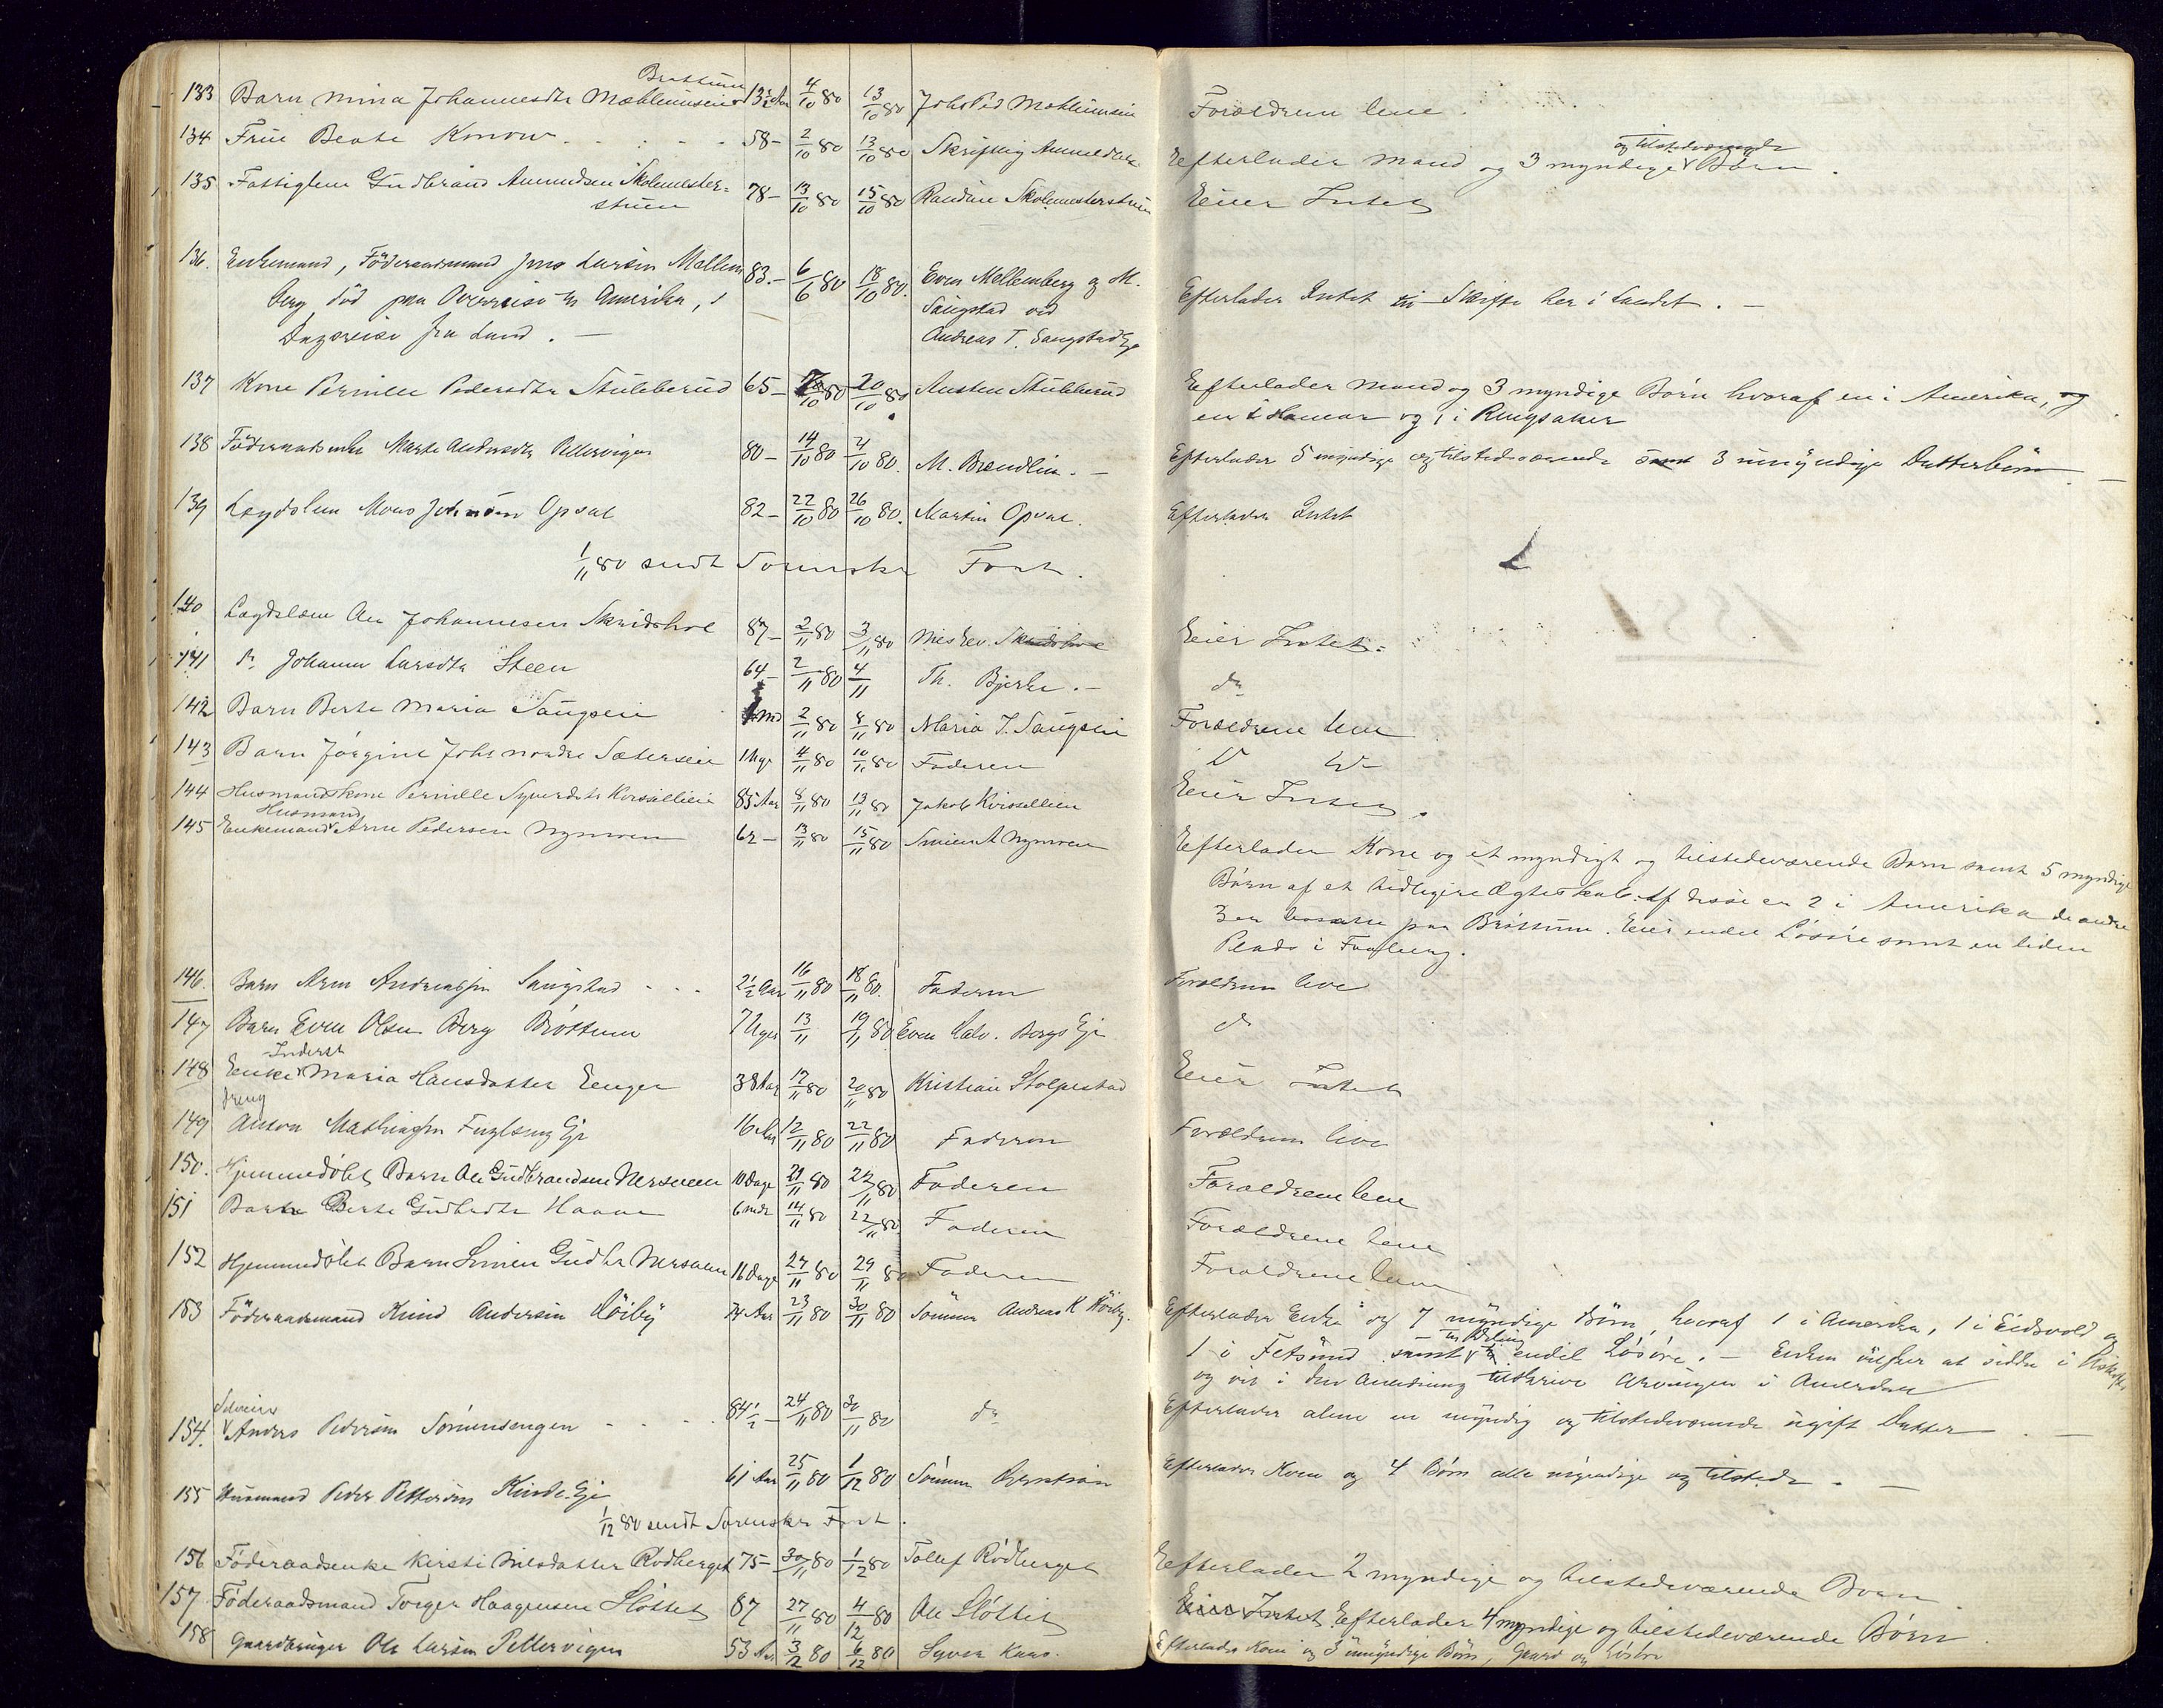 Brøttum
133 Barn Mina Johannesdtr Mæhlumseie 13½ Aar 4/10 80 13/10 80 Johs Ped Mæhlumseie Forældrene leve.
134 Frue Beate Konow 58 - 2/10 80 13/10 80 Skriftlig Anmeldelse Efterlader Mand og 3 myndige og tilstedeværende Børn.
135 Fattiglem Gudbrand Amundsen Skolemester-
stuen 78 - 13/10 80 15/10 80 Randine Skolemesterstuen Eier Intet
136. Enkemand, Föderaadsmand Jens Larsen Mellem- 83. - 6/6 80 18/10 80. Even Mellemberg og M.
berg död paa Overreise til Amerika, 1 Saugstad ved Efterlader Intet til Skifte her i Landet. -
Dagsreise fra Land. - Andreas T. Saugstadeje
137 Kone Pernille Pedersdtr Stubberud 65 - 10 80 20/10 80 Austen Stubberud Efterlader Mand og 3 myndige Børn hvoraf en i Amerika, og
en i Hamar og 1 i Ringsaker
138 Föderaadsenke Marte Andersdtr Pellerviken 80 - 14/10 80 21/10 80. M. Brændlien. - Efterlader 5 myndige og tilstedeværende samt 3 umyndige Datterbörn
139 Lægdslem Mons Johnsen Opsal 82 - 22/10 80 26/10 80. Martin Opsal. Efterlader Intet
1/11 80 sendt Sorenskr Fort.
140 Lægdslem Ole Johannesen Skridshol 87 - 2/11 80 3/11 80 Nils Ev. Skridshol Eier Intet.
141 do Johanne Larsdtr Steen 64 - 2/11 80 4/11 Th. Bjerke. - do
142 Barn Berte Maria Saugeie Md 2/11 80 8/11 80 Maria J. Saugeie Forældrene leve
143 Barn Jørgine Johs Sætereie 1 Uge 4/11 80 10/11 80 Faderen do do
144 Husmandskone Pernille Syverdtr Kvisellien 85 Aar 8/11 80 13/11 80 Jakob Kvisellien Eier Intet.
Husmand
145 Enkemand Arne Pedersen Nymoen 62 - 13/11 80 15/11 80 Simen A Nymoen Efterlader Kone og et myndigt og tilstedeværende Barn samt 5 myndige
Børn af et tidligere Ægteskab. Af disse er 2 i Amerika de andre
3 er bosatte paa Brøttum. Eier endel Løsøre samt en liden
Plads i Faaberg.
146. Barn Arne Andreassen Saugstad 2½ Aar 16/11 80 18/11 80. Faderen Forældrene leve
147 Barn Even Olsen Berg Brøttum 7 Uger 13/11 19/11 80 Even Halv. Bergs Eje do
Inderst
148 Enke Maria Hansdatter Enger 38 Aar 17/11 80 20/11 80 Kristian Stolpestad Eier Intet
Dreng
149 Anton Mathiassen Fuglseng Eje 16 Aar 12/11 80 22/11 80 Faderen Forældrene leve
150. Hjemmedøbt Barn Ole Gudbrandsen Nersveen 10 Dage 21/11 80 22/11 80 Faderen Forældrene leve
151 Barn Berte Gudbrdtr Haave 6 Mdr 14/11 80 22/11 80 Faderen Forældrene leve
152 Hjemmedøbt Barn Simen Gudbr Nersveen 16 Dage 27/11 80 29/11 80 Faderen Forældrene leve
153 Föderaadsmand Knud Andersen Höiby 74 Aar 23/11 80 30/11 80 Sönnen Andreas K Höiby. Efterlader Enke og 7 myndige Börn, hvoraf 1 i Amerika, 1 i Eidsvold og
1 i Fetsund samt til Deling endel Løsøre. - Enken ønsker at sidde i Uskiftet
og vil i den Anledning tilskrive Arvingen i Amerika
Selveier
154. Anders Pedersen Simensengen 84½ - 24/11 80 30/11 80 do Efterlader alene en myndig og tilstedeværende ugift Datter.
155 Husmand Peder Pettersen Kinde Eje 61 Aar 25/11 80 1/12 80 Sönnen Efterlader Kone og 4 Börn alle myndige og tilstede. -
1/12 80 sendt Sorenskr Fort.
156 Föderaadsenke Kirsti Nilsdatter Rödberget 75 - 30/11 80 1/12 80 Tollef Rödberget Efterlader 2 myndige og tilstedeværende Børn.
157. Föderaadsmand Torger Haagensen Slöttet 87 27/11 80 4/12 80 Ole Slöttet Eier Intet. Efterlader 4 myndige og tilstedeværende Børn.
158 Gaardbruger Ole Larsen Pellerviken 53 Aar 3/12 80 6/12 80 Syver Efterlader Kone og 3 umyndige Börn, Gaard og Løsøre